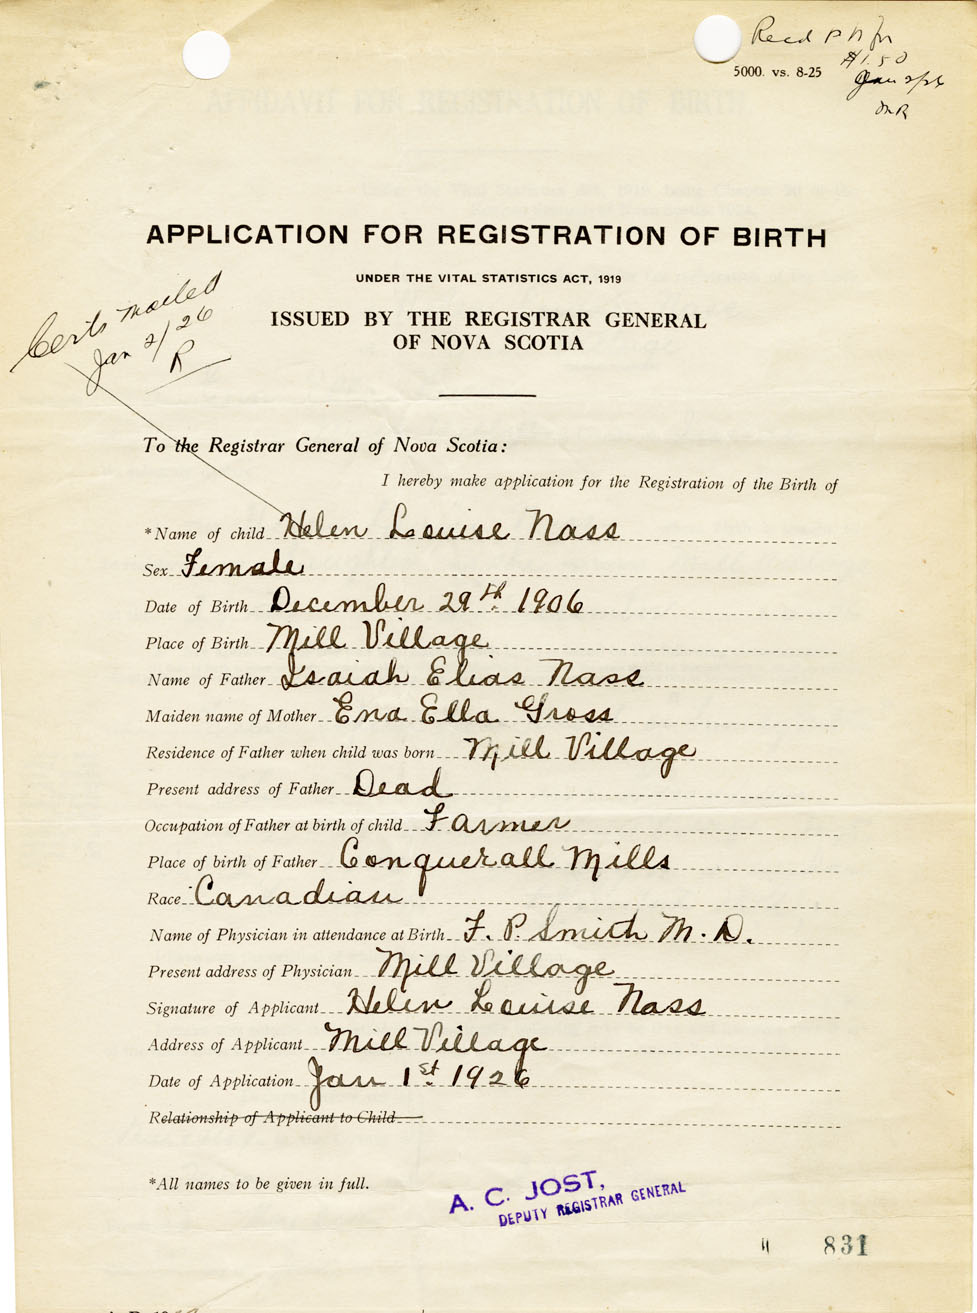 Recd P N for
$1.50
Jan 2/26
5000. vs. 8-25
APPLICATION FOR REGISTRATION OF BIRTH
UNDER THE VITAL STATISTICS ACT, 1919
ISSUED BY THE REGISTRAR GENERAL
OF NOVA SCOTIA
Certs mailed
Jan 2/26
R
To the Registrar General of Nova Scotia:
I hereby make application for the Registration of the Birth of
*Name of child Helen Louise Nass
Sex Female
Date of Birth December 29th 1906
Place of Birth Mill Village
Name of Father Isaiah Elias Nass
Maiden name of Mother Ena Ella Gross
Residence of Father when child was born Mill Village
Present address of Father Dead
Occupation of Father at birth of child Farmer
Place of birth of Father Conquerall Mills
Race Canadian
Name of Physician in attendance at Birth F. P. Smith M. D.
Present address of Physician Mill Village
Signature of Applicant Helen Louise Nass
Address of Applicant Mill Village
Date of Application Jan 1st 1926
Relationship of Applicant to Child
*All names to be given in full.
A. C. JOST,
DEPUTY REGISTRAR GENERAL
831